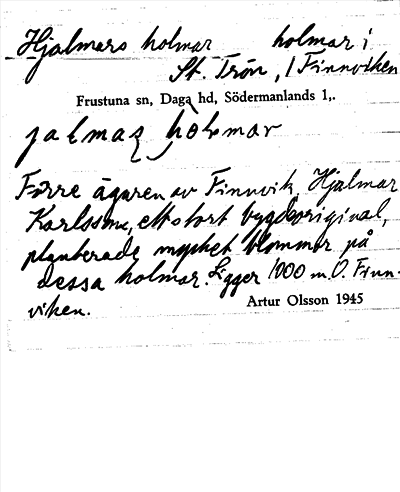 Hjalmars holmar holmar i
St. Trön, i Finnviken
Frustuna sn, Daga hd, Södermanlands l,.
jalmaʒ hòlmar
Förre ägaren av Finnvik, Hjalmar
Karlsson, ett stort bygdeoriginal,
planterade mycket blommor på
dessa holmar. Ligger 1000 m. O. Finn-
viken.
Artur Olsson 1945